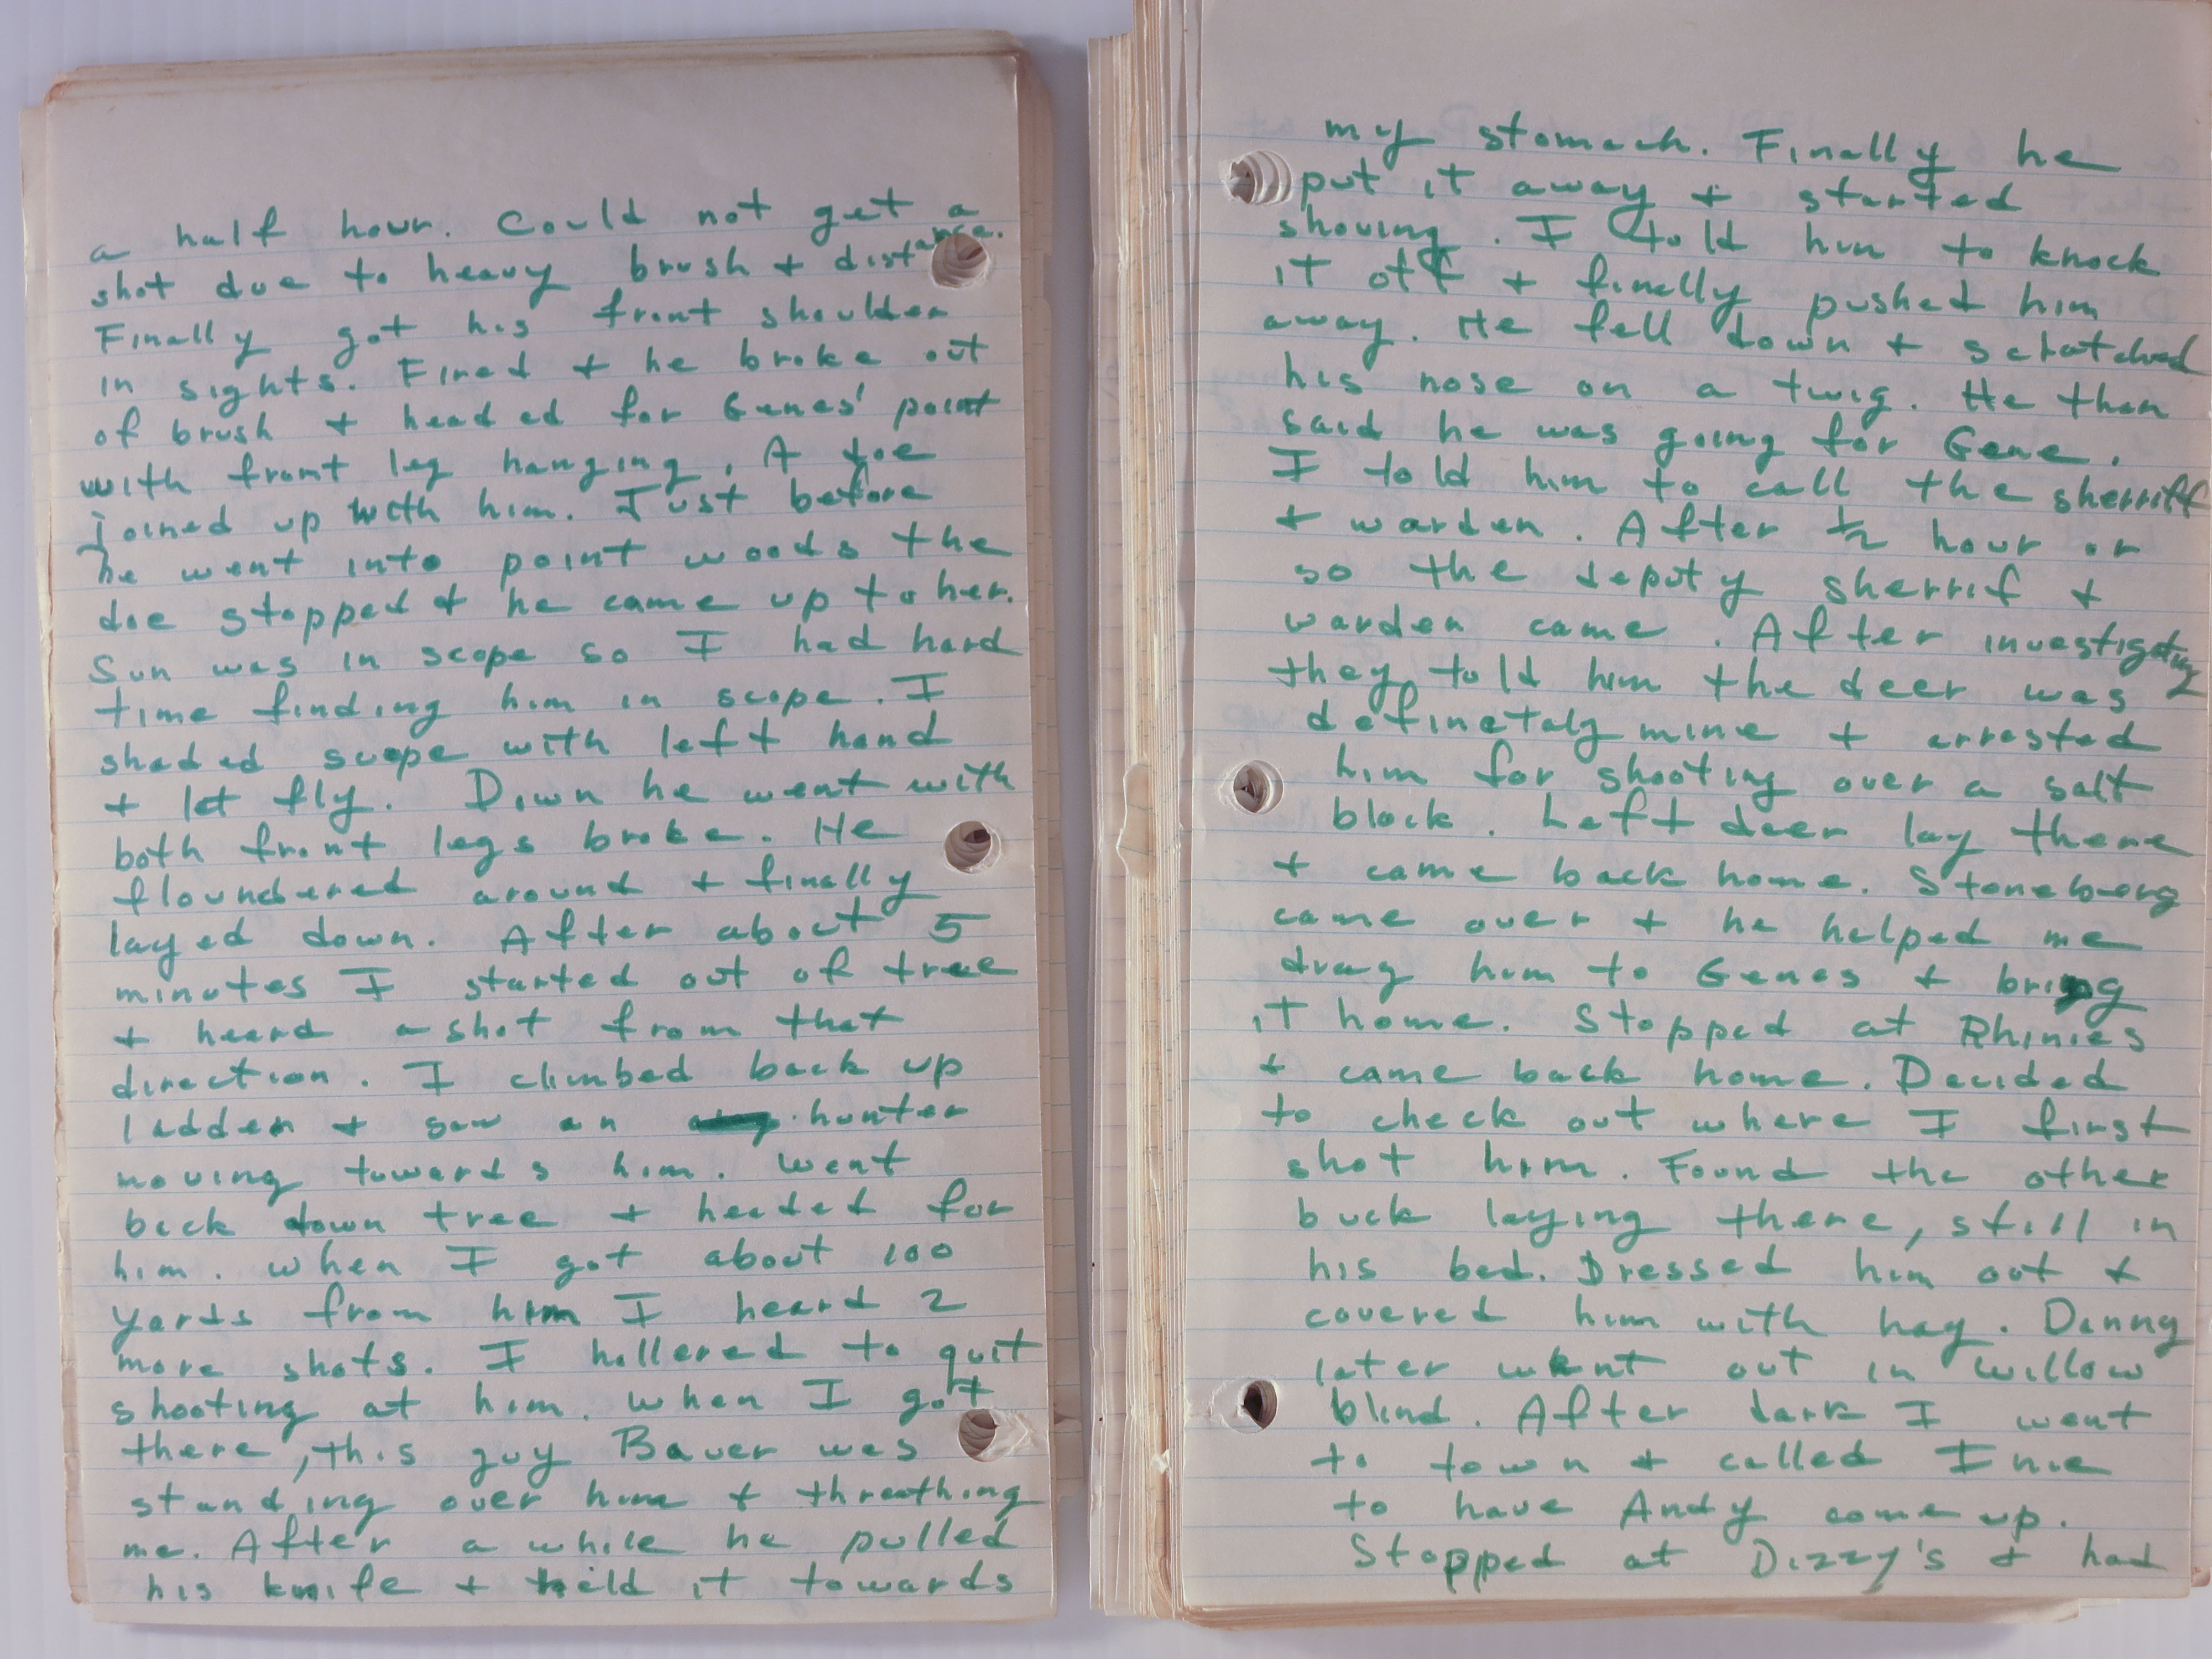 a half hour. Could not get a
shot due to heavy brush + distance.
Finally got his front shoulder
in sights. Fired + he broke out
of brush + headed for Genes' point
with front leg hanging. A doe
joined up with him. Just before
he went into point woods the
doe stopped + he came up to her.
Sun was in scope so I had hard
time finding him in scope. I
shaded scope with left hand
+ let fly. Down he went with
both front legs broke. He
floundered around + finally
layed down. After about 5
minutes I started out of tree
+ heard a shot from that
direction. I climbed back up
ladder + saw an hunter
moving towards him. Went
back down tree + headed for
him. When I got about 100
yards from him I heard 2
more shots. I hollered to quit
shooting at him. When I got
there, this guy Bauer was
standing over him + threathing
me. After a while he pulled
his knife + held it towards
my stomach. Finally he
put it away + started
shoving. I told him to knock
it off + finally pushed him
away. He fell down + scratched
his nose on a twig. He then
said he was going for Gene.
I told him to call the sherriff
+ warden. After ½ hour or
so the deputy sherrif +
warden came. After investigating
they told him the deer was
definetaly mine + arrested
him for shooting over a salt
block. Left deer lay there
+ came back home. Stoneberg
came over + he helped me
drag him to Genes + bring
it home. Stopped at Rhinies
+ came back home. Decided
to check out where I first
shot him. Found the other
buck laying there, still in
his bed. Dressed him out +
covered him with hay. Danny
later went out in willow
blind. After dark I went
to town + called Inie
to have Andy come up.
Stopped at Dizzy's + had